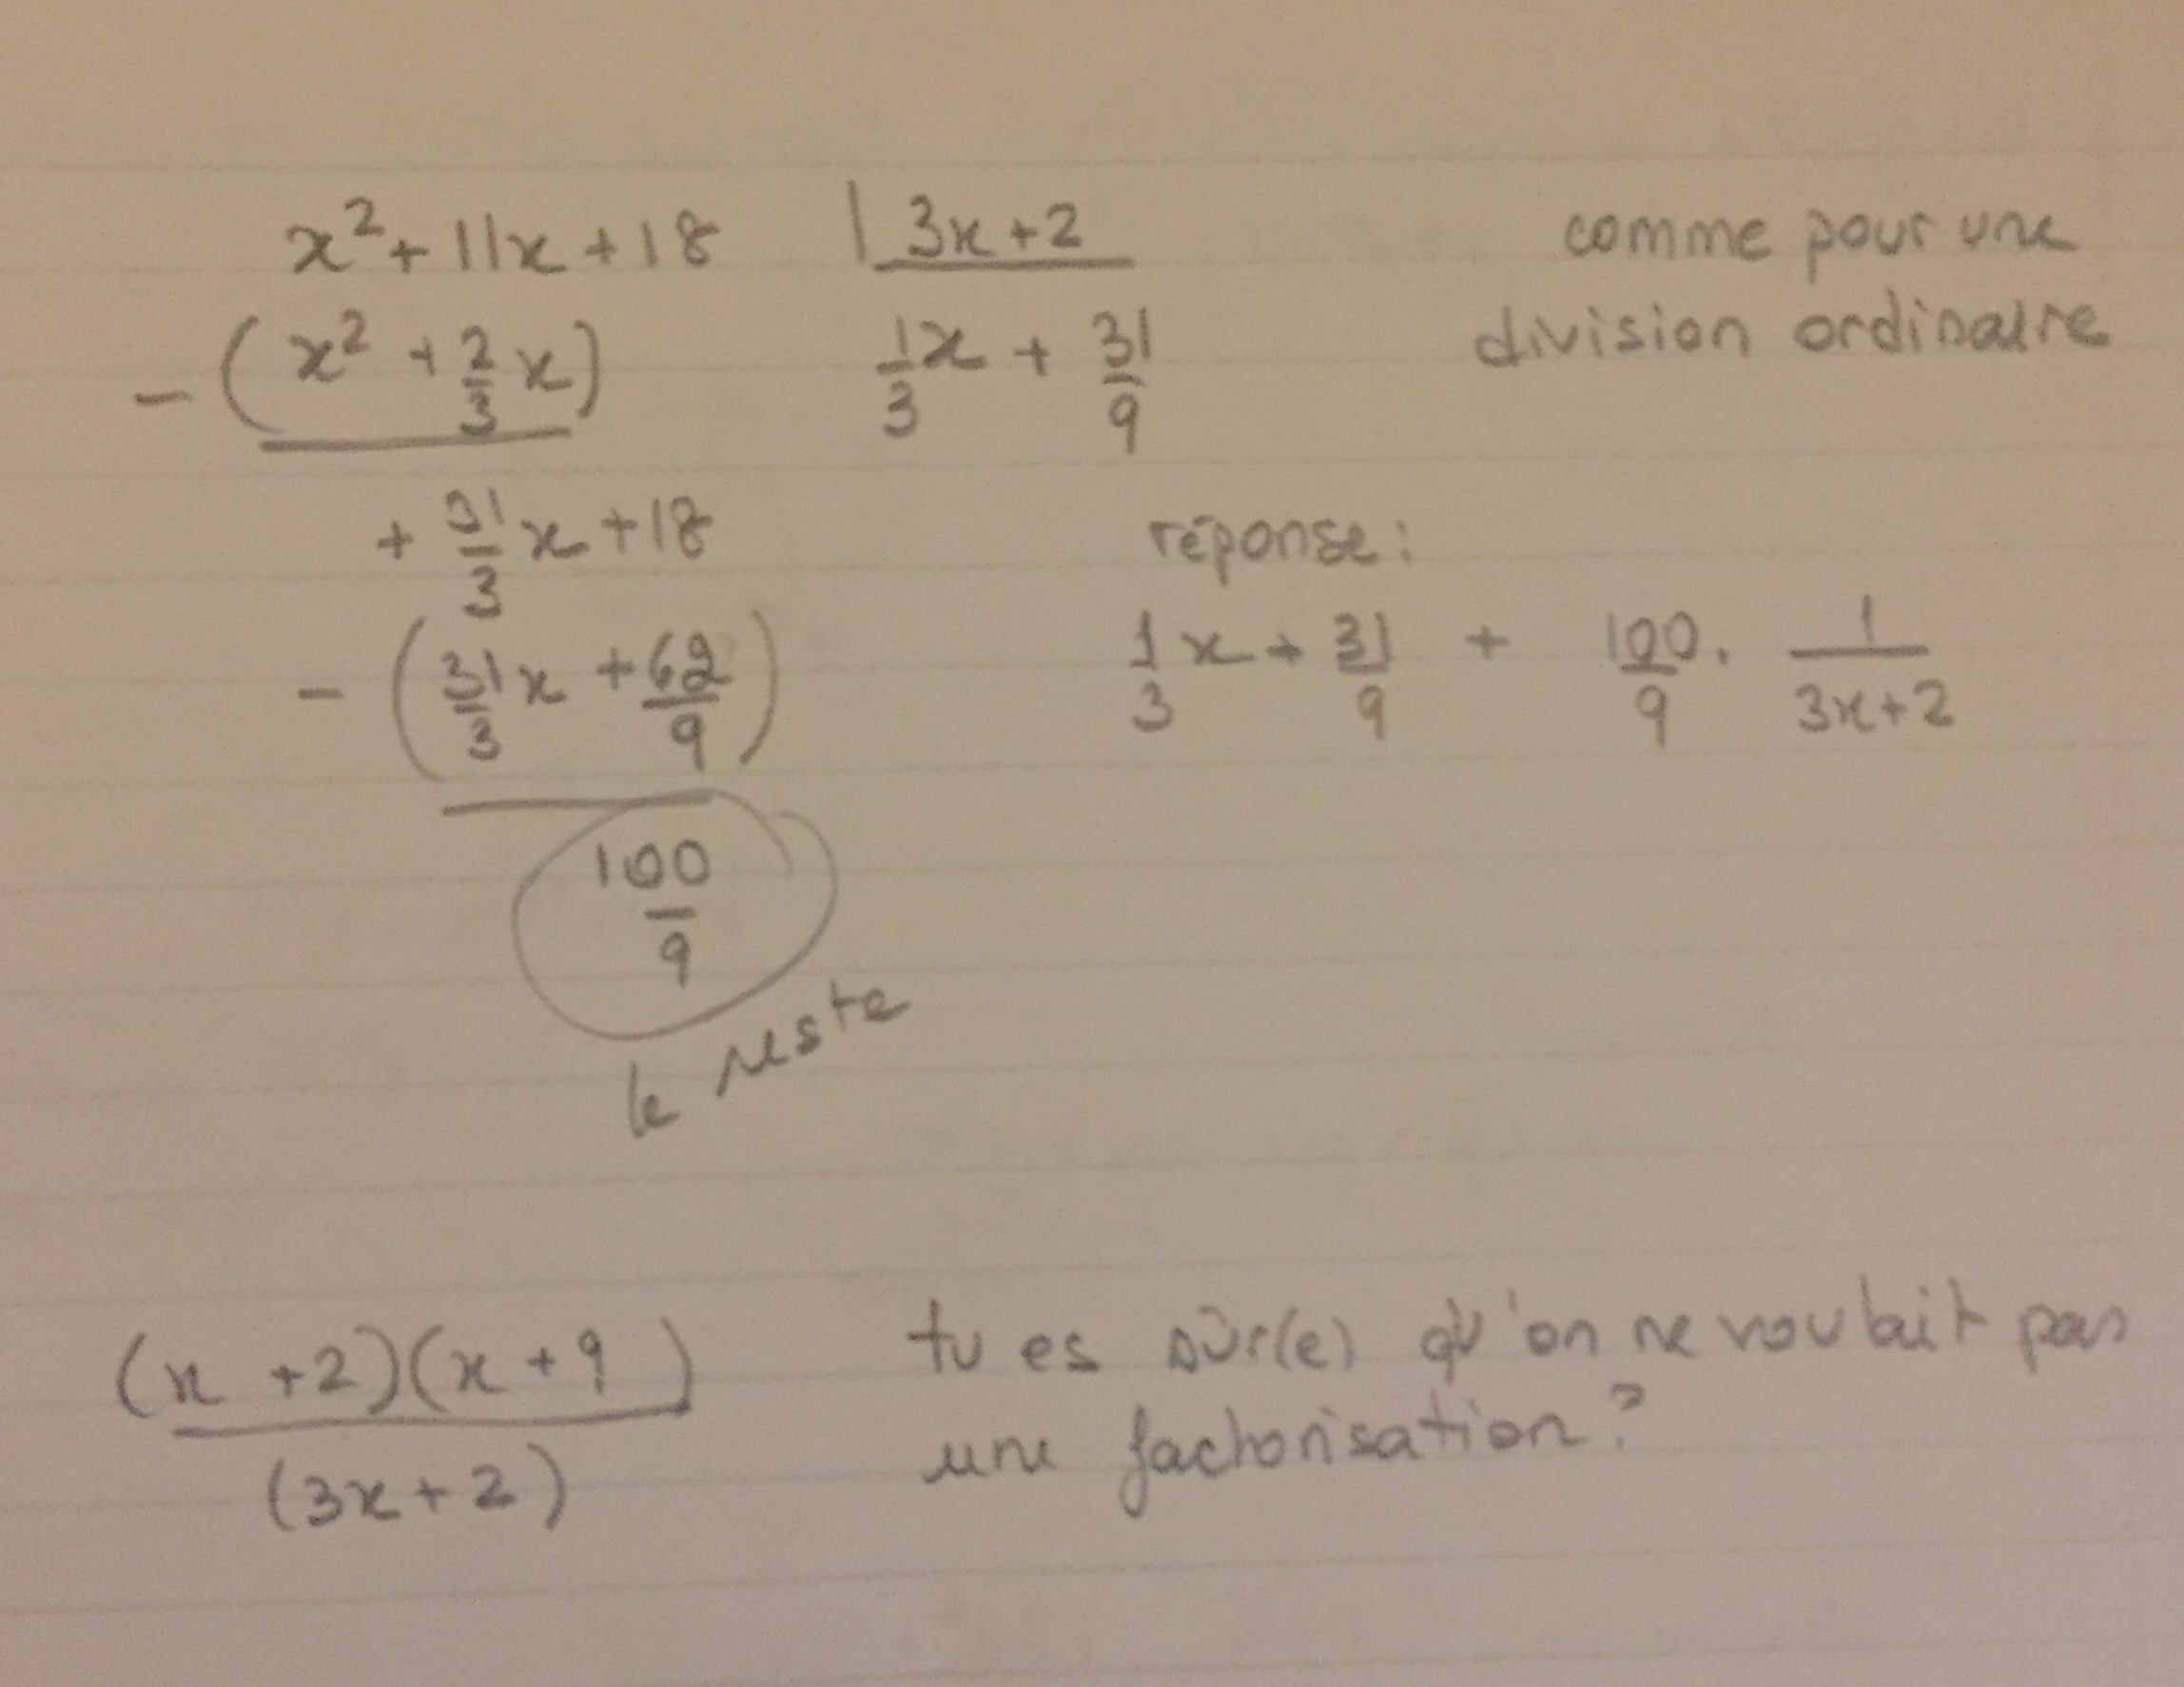 x² + 11x + 18 | 3x + 2
- (x² + 2/3 x) 1/3 x + 31/9
+ 31/3 x + 18
- (31/3 x + 62/9)
100/9
le reste
comme pour une
division ordinaire
réponse :
1/3 x + 31/9 + 100/9 . 1/(3x+2)
(x + 2)(x + 9)
(3x + 2)
tu es sûr(e) qu'on ne voulait pas
une factorisation ?